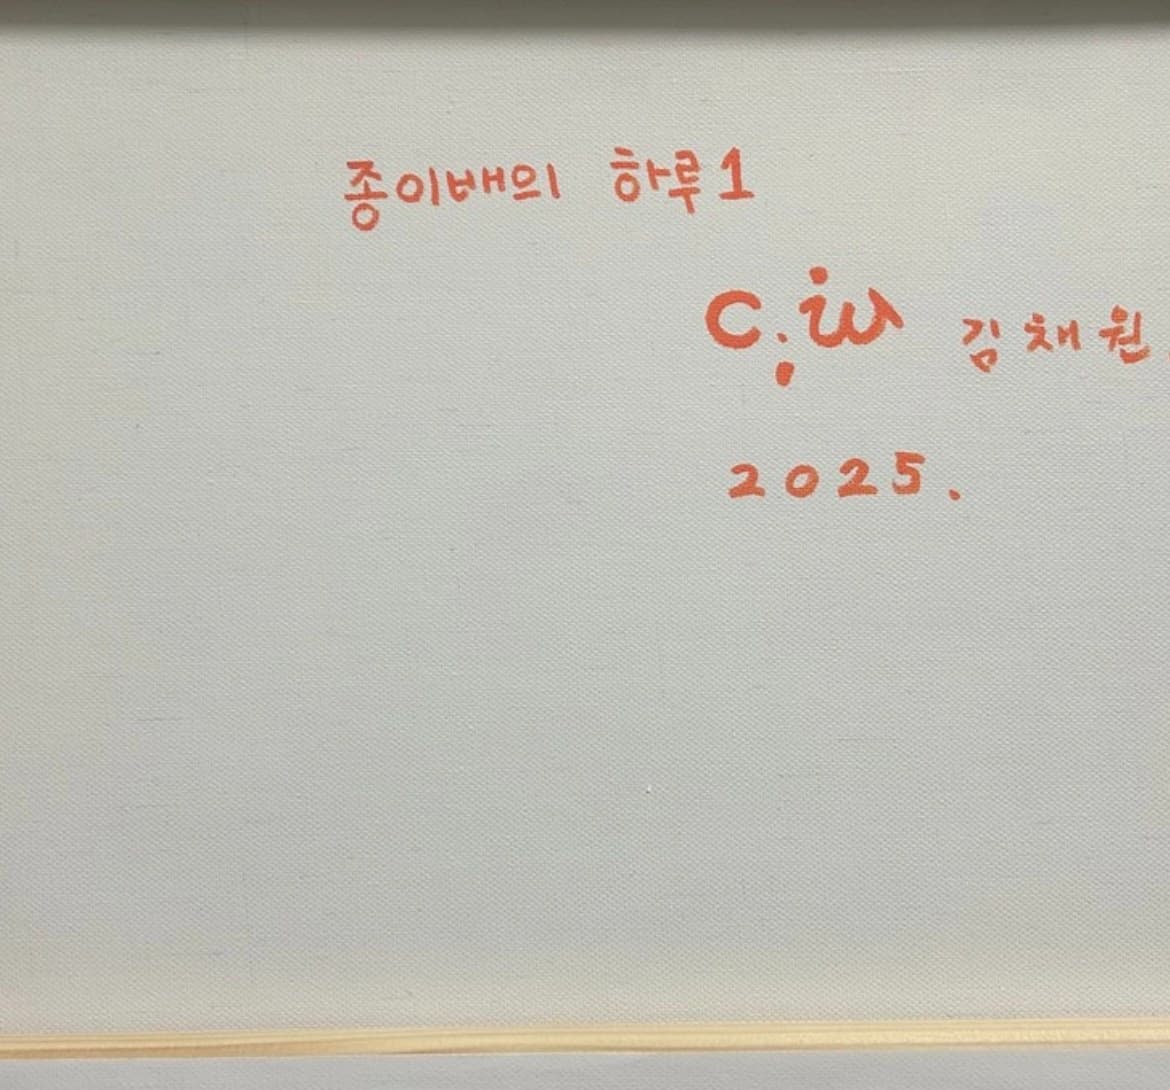 종이배의 하루 1
c.w 김채원
2025.